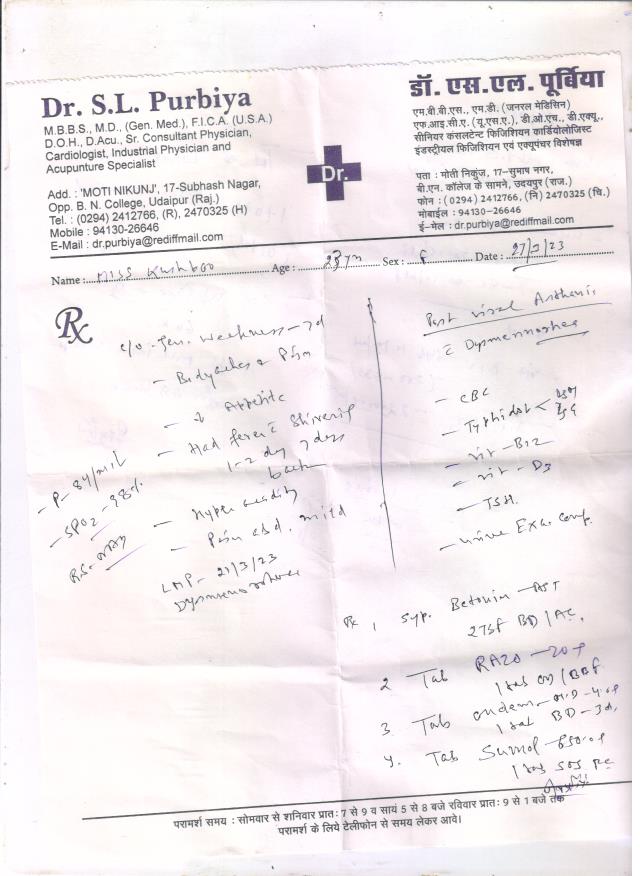 Dr. S.L. Purbiya
M.B.B.S., M.D., (Gen. Med.), F.I.C.A. (U.S.A.)
D.O.H., D.Acu., Sr. Consultant Physician,
Cardiologist, Industrial Physician and
Acupunture Specialist
Add. : 'MOTI NIKUNJ', 17-Subhash Nagar,
Opp. B. N. College, Udaipur (Raj.)
Tel. : (0294) 2412766, (R), 2470325 (H)
Mobile : 94130-26646
E-Mail : dr.purbiya@rediffmail.com
Dr.
डॉ. एस.एल. पूर्बिया
एम.बी.बी.एस., एम.डी. (जनरल मेडिसिन)
एफ.आइ.सी.ए. (यू.एस.ए.), डी.ओ.एच., डी.एक्यू.,
सीनियर कंसलटेन्ट फिजिशियन कार्डियोलोजिस्ट
इंडस्ट्रीयल फिजिशियन एवं एक्यूपंचर विशेषज्ञ
पता : मोती निकुंज, 17-सुभाष नगर,
बी.एन. कॉलेज के सामने, उदयपुर (राज.)
फोन : (0294) 2412766, (नि) 2470325 (चि.)
मोबाईल : 94130-26646
ई-मेल : dr.purbiya@rediffmail.com
Name : Miss Kushboo Age : Sex : F Date :
Rx
c/o - Gen. Weakness - 7d
- Bodyaches & Pain
- ↓ Appetite
- Had fever c̄ Shivering
1-2 day 7 days
back
- P - 84/mit
- SPO2 - 98%
RS - NAD
- Hyper acidity
- Pain abd. mild
LMP - 21/3/23
Dysmenorrhoea
Post viral Asthenia
c̄ Dysmenorrhea
- CBC
- Typhidot < IgM
IgG
- vit - B12
- vit - D3
- TSH
- urine Exa. Comp.
Rx 1, Syp. AST
2TSF BD/AC,
2 Tab RAZO - 20
1 tab OD/BBF
3. Tab Ondem - M.D - 4
1 tab BD - 3d,
4. Tab Sumol - 650
1 tab SOS PC
परामर्श समय : सोमवार से शनिवार प्रातः 7 से 9 व सायं 5 से 8 बजे रविवार प्रातः 9 से 1 बजे तक
परामर्श के लिये टेलीफोन से समय लेकर आवें।